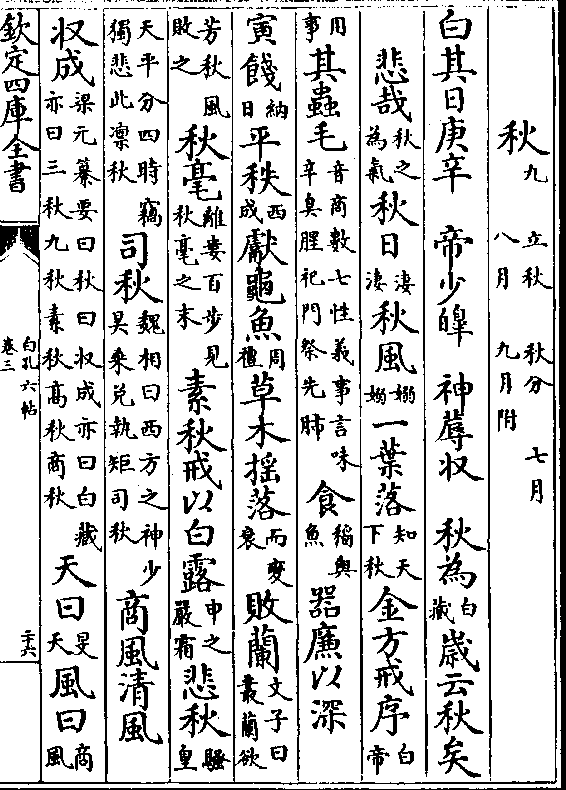 秋九 立秋 秋分 七月 八月 九月附
白其日庚辛 帝少皥 神蓐収 秋為白藏 歲云秋矣
悲哉秋之為氣 秋日淒淒 秋風嫋嫋 一葉落知天下秋 金方戒序白帝
用事 其蟲毛音商數七性義事言味辛臭腥祀門祭先肺 食稻與魚 器廉以深
寅餞納日 平秩西成 獻龜魚周禮 草木揺落而變衰 敗蘭文子曰叢蘭欲
芳秋風敗之 秋毫離婁百步見秋毫之末 素秋戒以白露申之嚴霜 悲秋騷皇
天平分四時竊獨悲此凜秋 司秋魏相曰西方之神少昊乗兌執矩司秋 商風清風
収成梁元纂要曰秋曰収成亦曰白藏亦曰三秋九秋素秋髙秋商秋 天曰旻天 風曰商風
欽定四庫全書 白孔六帖 卷三 二十六